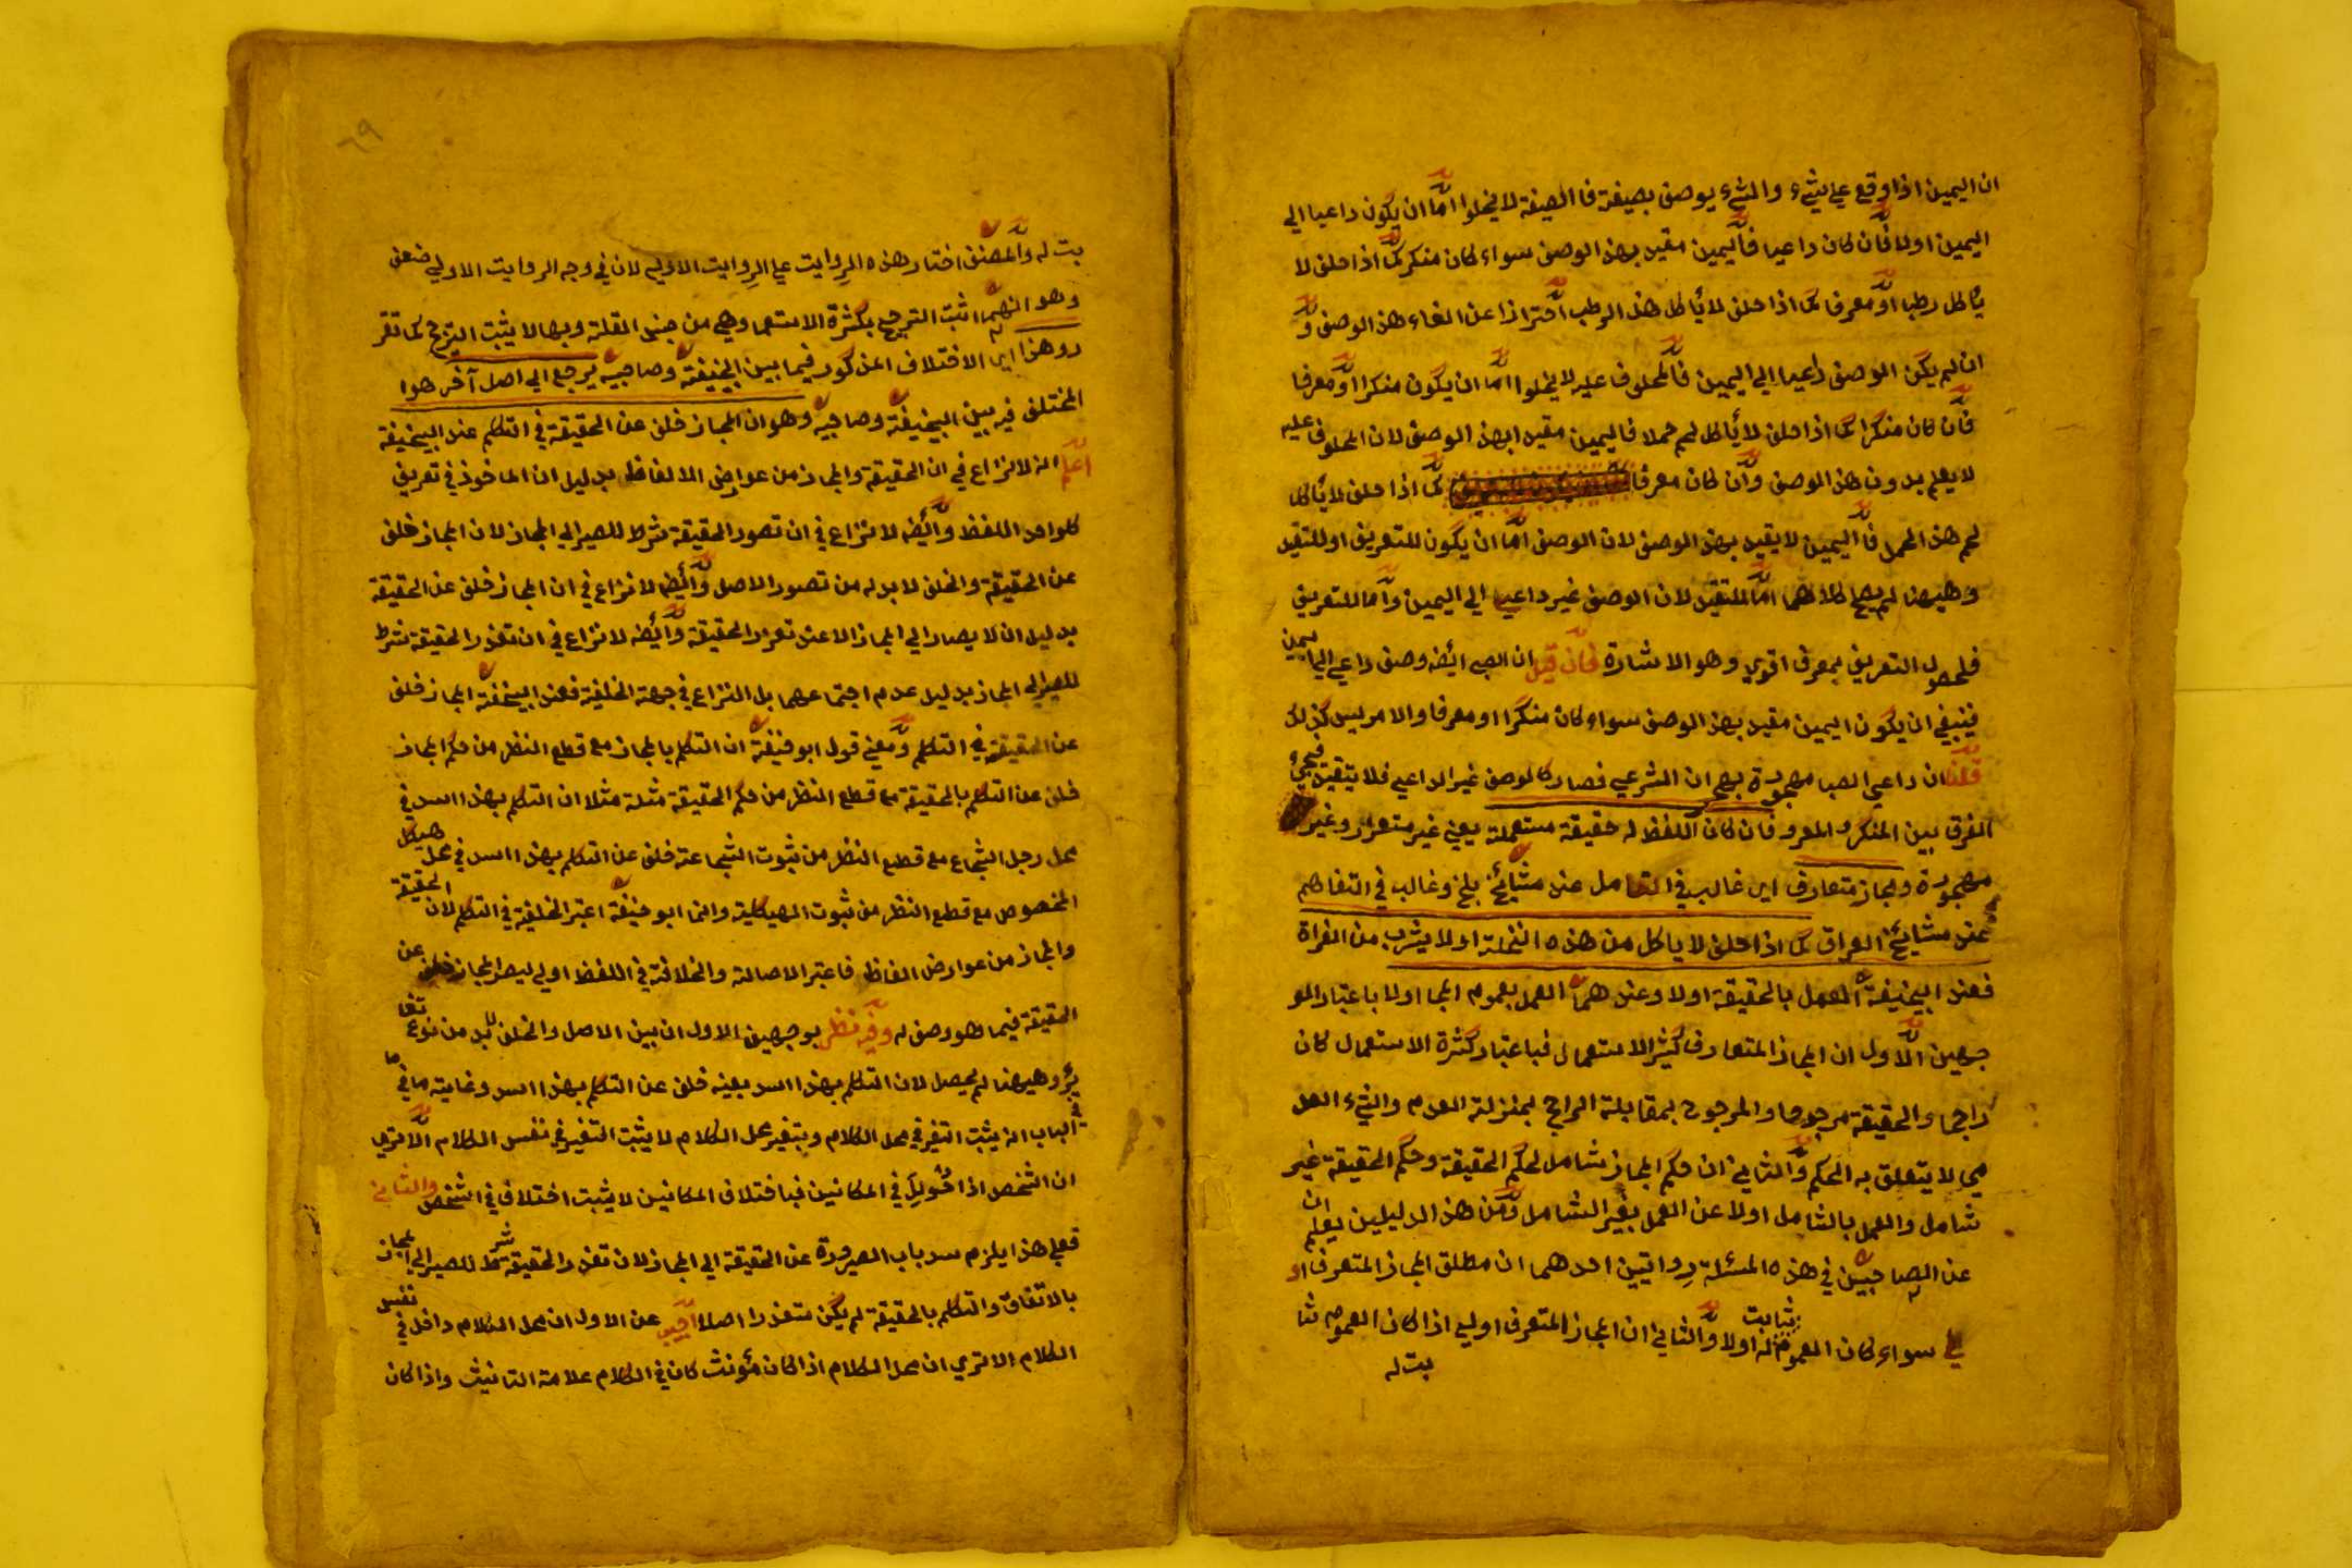 ان اليمين اذا وقع علي شيء والشيء يوصف بصيغة فا الصيغة لا يخلوا اما ان يكون داعيا الي
اليمين اولا فان كان داعيا فاليمين مقيد بهذا الوصف سواء كان منكر كما اذا حلف لا
يأكل رطبا او معرفا كما اذا حلف لا يأكل هذا الرطب احترازا عن الغاء هذا الوصف و
ان لم يكن الوصف داعيا الي اليمين فالمحلوف عليه لا يخلوا اما ان يكون منكرا او معرفا
فان كان منكرا كما اذا حلف لا يأكل لحم حملا فاليمين مقيدا بهذا الوصف لان المحلوف عليه
لا يعلم بدون هذا الوصف وان كان معرفا كما اذا حلف لا يأكل
لحم هذا الحمل فاليمين لا يقيد بهذا الوصف لان الوصف اما ان يكون للتعريف او للتقيد
وهيهنا لم يصح كلاهما اما للتقيد لان الوصف غير داعيا الي اليمين واما للتعريف
فلحصول التعريف بمعرف اقوي وهو الاشارة فان قيل ان الصبي ايضه وصف داعي الي اليمين
فينبغي ان يكون اليمين مقيد بهذا الوصف سواء كان منكرا او معرفا والامر ليس كذلك
قلنا ان داعي الصبا مهجورة بهجران الشرعي فصار كالوصف غير الداعي فلا يتقيد فيجيء
الفرق بين المنكر والمعرو فان كان اللفظ له حقيقة مستعملة يعني غير متعذر وغير
مهجورة ومجاز متعارف اي غالب في التعامل عند مشائخ بلخ وغالب في التفاهم
عند مشائخ العراق كما اذا حلف لا ياكل من هذه النخلة اولا يشرب من الفراة
فعند ابيحنيفة العمل بالحقيقة اولا وعندهما العمل بعموم المجا اولا باعتبار الو
جهين الاول ان المجاز المتعارف كثير الاستعمال فباعتبار كثرة الاستعمال كان
راجحا والحقيقة مرجوحا والمرجوح بمقابلة الراجح بمنزلة العدم والشيء العد
مي لا يتعلق به الحكم والثاني ان حكم المجاز شامل لحكم الحقيقة وحكم الحقيقة غير
شامل والعمل بالشامل اولا عن العمل بغير الشامل ومن هذا الدليلين يعلم ان
عن الصاحبين في هذه المسئلة رواتيين احدهما ان مطلق المجاز المتعرف او
لي سواء كان العموم ثابت له اولا والثاني ان المجاز المتعرف اولي اذا كان العموم ثا
بت له
٦٩
بت له والمصنف اختار هذه الروايت علي الروايت الاوليه لان في وجه الروايت الاولي ضعف
وهو انهما اثبت الترجيح بكثرة الاستعما وهي من جنس القلة وبها لا يثبت الترجح كما تقر
روهذا اي الاختلاف المذكور فيما بين ابيحنيفة وصاحبيه يرجع الي اصل آخر هوا
المختلف فيه بين ابيحنيفة وصاحبيه وهو ان المجاز خلف عن الحقيقة في التكلم عند ابيحنيفة
اعلم انه لا نزاع في ان الحقيقة والمجاز من عوارض الالفاظ بدليل ان الماخوذ في تعريف
كلواحد اللفظ وايضه لا نزاع في ان تصور الحقيقة شرط للصير الي المجاز لان المجاز خلف
عن الحقيقة والخلف لا بد له من تصور الاصل وايضا لا نزاع في ان المجاز خلف عن الحقيقة
بدليل ان لا يصار الي المجاز الا عند تعذر الحقيقة وايضه لا نزاع في ان تعذر الحقيقة شرط
للصير الي المجاز بدليل عدم اجتماعهما بل النزاع في جهة الخلفية فعند ابيحنيفة المجاز خلف
عن الحقيقة في التكلم ومعني قول ابو حنيفة ان التكلم بالمجاز مع قطع النظر من حكم المجاز
خلف عن التكلم بالحقيقة مع قطع النظر من حكم الحقيقة مثلة مثلا ان التكلم بهذا اسد في
محل رجل الشجاع مع قطع النظر من ثبوت الشجاعة خلف عن التكلم بهذا اسد في محل هيكل
المخصوص مع قطع النظر من ثبوت الهيكلية وانما ابو حنيفة اعتبر الخلفية في التكلم لان الحقيقة
والمجاز من عوارض الفاظ فاعتبر الاصالة والخلافة في اللفظ اولي ليصير المجاز خلف عن
الحقيقة فيما هو وصف له وفيه نظر بوجهين الاول ان بين الاصل والخلف لابد من نوع تغا
ير وهيهنا لم يحصل لان التكلم بهذا اسد بعينه خلف عن التكلم بهذا اسد وغايته ما في
الباب انه يثبت التغير في محل الكلام وبتغير محل الكلام لا يثبت التغير في نفس الكلام الا تري
ان الشخص اذا في المكانين فباختلاف المكانين لا يثبت اختلاف في الشخص والثاني
فعلي هذا يلزم سد باب الصيرورة عن الحقيقة الي المجاز لان تعذر الحقيقة شرط للصير الي المجاز
بالاتفاق والتكلم بالحقيقة لم يكن متعذرا اصلا اجيب عن الاول ان محل الكلام داخل في نفس
الكلام الا تري ان محل الكلام اذا كان مؤنث كان في الكلام علامة التانيث واذا كان